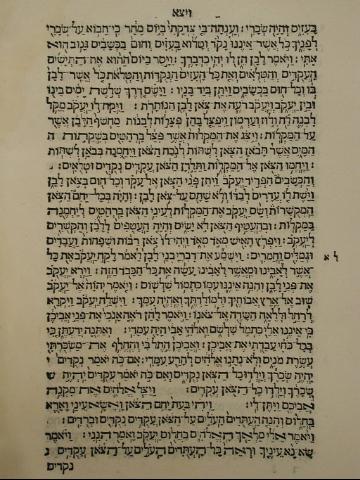 ויצא
בעזים והיה שכרי : וענתה בי צדקתי ביום מחר כי תבוא על שכרי
לפניך כל אשר איננו נקד וטלוא בעזים וחום בכשבים גנוב הוא
אתי : ויאמר לבן הן לו יהי כדברך : ויסר ביום ההוא את התישים
העקדים והטלאים ואת כל העזים הנקדות והטלאת כל אשר לבן
בו וכל חום בכשבים ויתן ביד בניו : וישם דרך שלשת ימים בינו
ובין יעקב ויעקב רעה את צאן לבן הנותרת : ויקח לו יעקב מקל
לבנה לח ולוז וערמון ויפצל בהן פצלות לבנות מחשף הלבן אשר
על המקלות : ויצג את המקלות אשר פצל ברהטים בשקתות
המים אשר תבאן הצאן לשתות לנכח הצאן ויחמנה בבאן לשתות
: ויחמו הצאן אל המקלות ותלדן הצאן עקדים נקדים וטלאים :
והכשבים הפריד יעקב ויתן פני הצאן אל עקד וכל חום בצאן לבן
וישת לו עדרים לבדו ולא שתם על צאן לבן : והיה בכל יחם הצאן
המקשרות ושם יעקב את המקלות לעיני הצאן ברהטים ליחמנה
במקלות : ובהעטיף הצאן לא ישים והיה העטפים ללבן והקשרים
ליעקב : ויפרץ האיש מאד מאד ויהי לו צאן רבות ושפחות ועבדים
וגמלים וחמרים : וישמע את דברי בני לבן לאמר לקח יעקב את כל
לא
אשר לאבינו ומאשר לאבינו עשה את כל הכבד הזה : וירא יעקב
את פני לבן והנה איננו עמו כתמול שלשום : ויאמר יהוה אל יעקב
שוב אל ארץ אבותיך ולמולדתך ואהיה עמך : וישלח יעקב ויקרא
לרחל וללאה השדה אל צאנו : ויאמר להן ראה אנכי את פני אביכן
כי איננו אלי כתמל שלשם ואלהי אבי היה עמדי : ואתנה ידעתן כי
בכל כחי עבדתי את אביכן : ואביכן התל בי והחלף את משכרתי
עשרת מנים ולא נתנו אלהים להרע עמדי : אם כה יאמר נקדים
יהיה שכרך וילדו כל הצאן נקדים ואם כה יאמר עקדים יהיה
שכרך וילדו כל הצאן עקדים : ויצל אלהים את מקנה
אביכם ויתן לי : ויהי בעת יחם הצאן ואשא עיני וארא
בחלום והנה העתדים העלים על הצאן עקדים נקדים וברדים :
ויאמר אלי מלאך האלהים בחלום יעקב ואמר הנני : ויאמר
שא נא עיניך וראה כל העתדים העלים על הצאן עקדים
נקדים